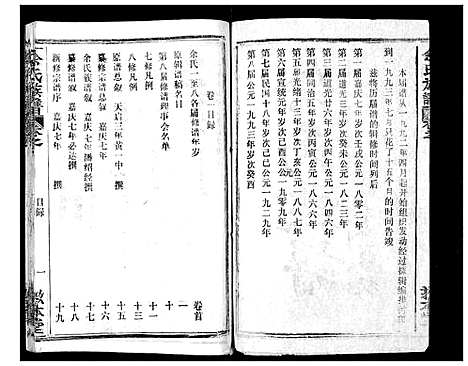 余氏族譜
本届谱从一九九二年四月起开始组织发动经过采辑编排
到一九九三年七月只花了十五个月的时间告竣
兹将历届谱的辑修时间列后
第一届嘉庆七年岁次壬戌公元一八零二年
第二届道光三年岁次癸未公元一八二三年
第三届道光廿四年岁次甲辰公元一八四四年
第四届同治五年岁次丙寅公元一八六六年
第五届光绪十三年岁次丁亥公元一八八七年
第六届宣统元年岁次己酉公元一九零九年
第七届民国十八年岁次己巳公元一九二九年
第八届公元一九九三年岁次癸酉
卷一目录 卷首
余氏一至八各届谱年岁
原辑谱稿名目 一
第八届修谱理事会名单
八修凡例
七修凡例 十一
原谱总叙 天启三年 黄一中撰 十五
纂修宗谱总叙 嘉庆七年 十六
余氏族谱叙 嘉庆七年 杨绍经撰 十七
纂修宗谱叙 嘉庆七年 必达撰 十八
新修宗谱序 嘉庆七年 撰 十九
余氏族譜
目录
一